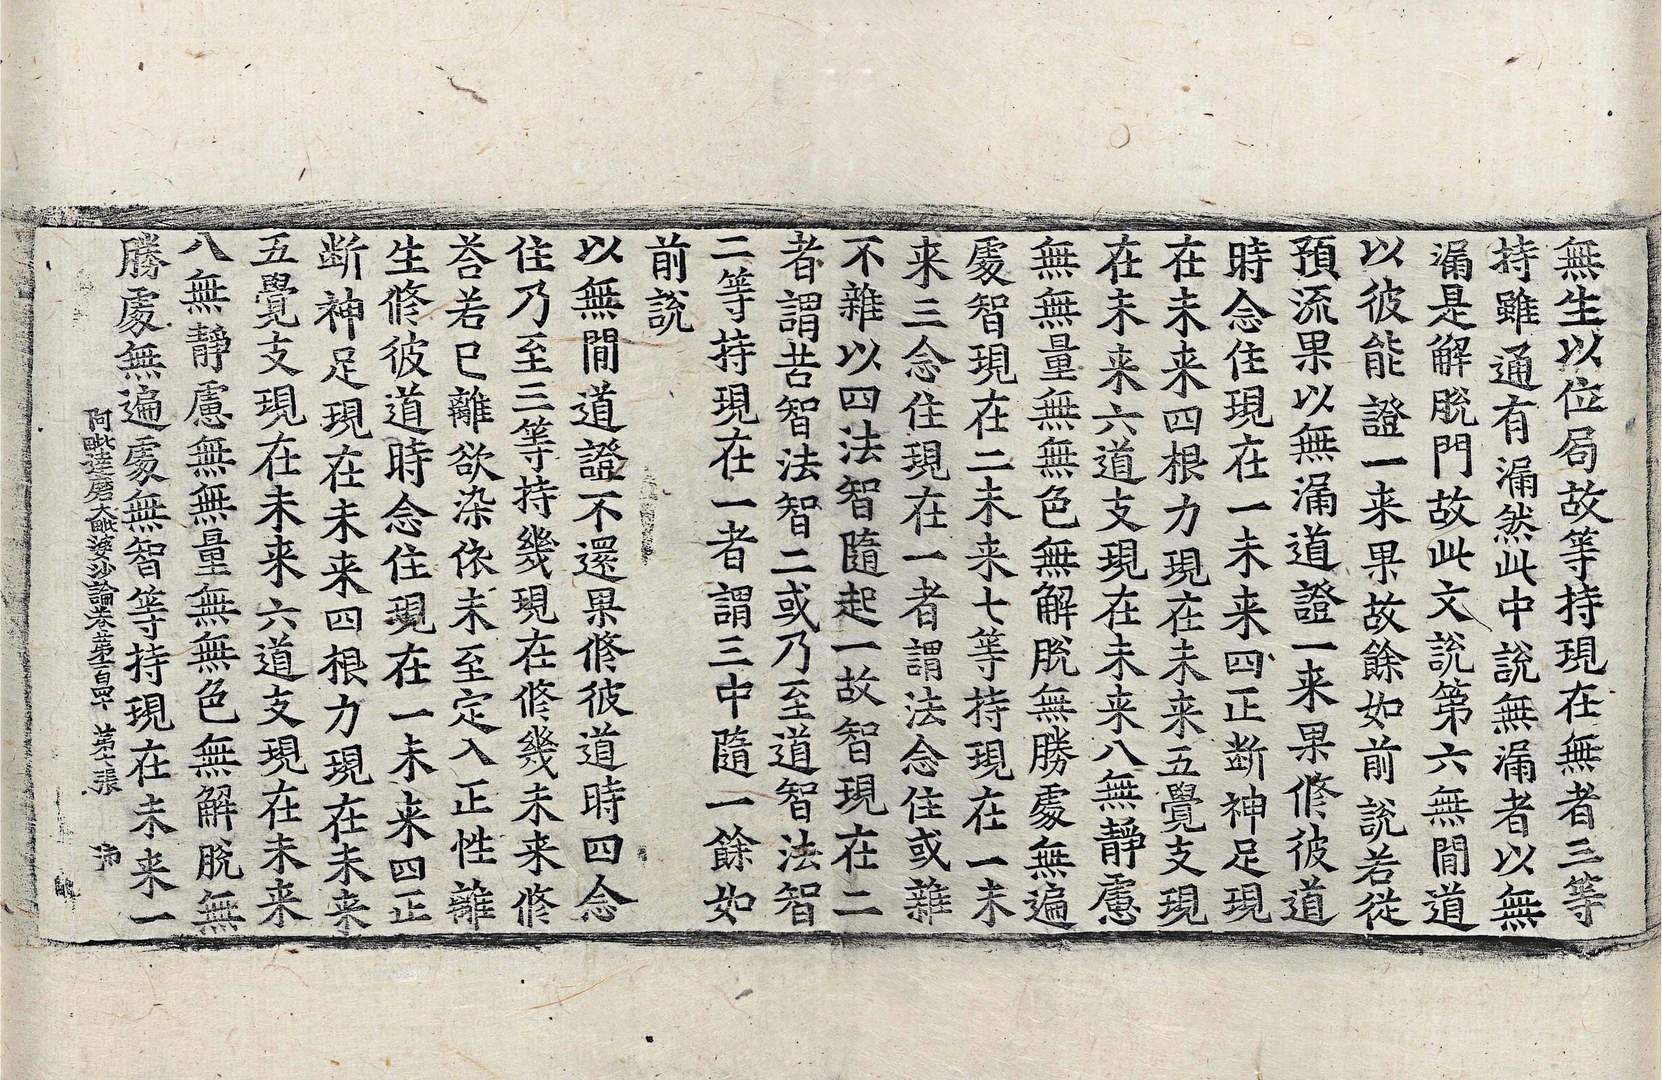 無生以位局故等持現在無者三等
持雖通有漏然此中說無漏者以無
漏是解脫門故此文說第六無間道
以彼能證一来果故餘如前說若從
預流果以無漏道證一来果修彼道
時念住現在一未来四正断神足現
在未来四根力現在未来五覺支現
在未来六道支現在未来八無靜慮
無無量無無色無解脫無勝處無遍
處智現在二未来七等持現在一未
来三念住現在一者謂法念住或雜
不雜以四法智隨起一故智現在二
者謂苦智法智二或乃至道智法智
二等持現在一者謂三中隨一餘如
前說
以無間道證不還果修彼道時四念
住乃至三等持幾現在修幾未来修
荅若已離欲染依未至定入正性離
生修彼道時念住現在一未来四正
断神足現在未来四根力現在未来
五覺支現在未来六道支現在未来
八無靜慮無無量無無色無解脫無
勝處無遍處無智等持現在未来一
阿毗達磨大毗婆沙論卷第一百四 第六張 沛